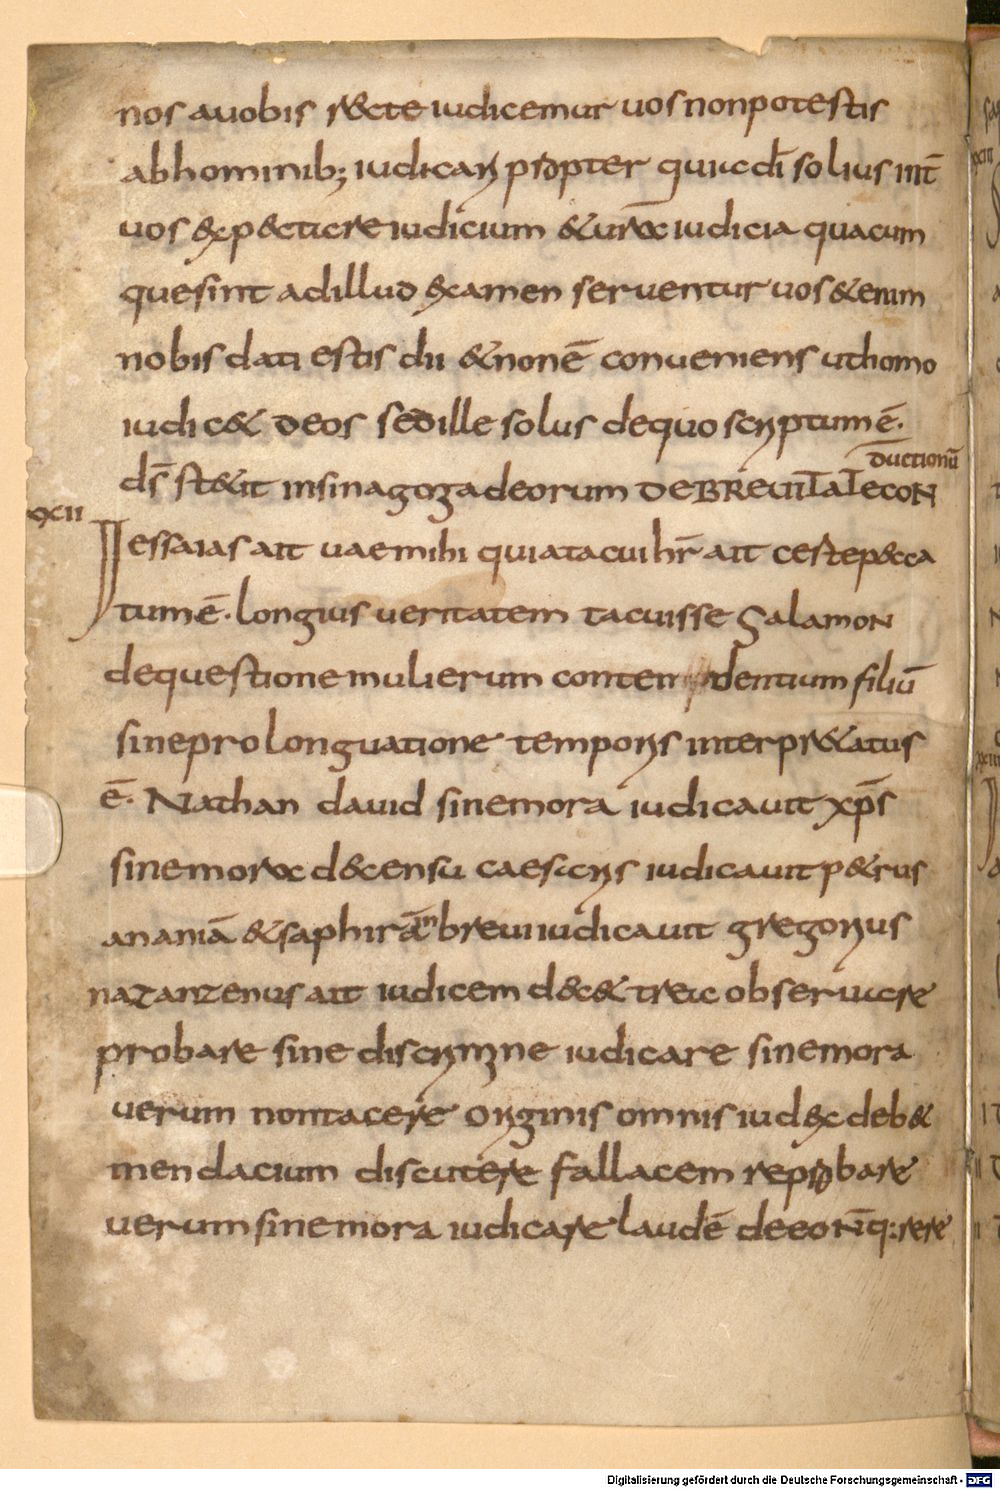 nos auobis r&cte iudicemur uos nonpotestis
abhominib; iudicari propter quuc di solius int̄
uos exp&ctare iudicium &urā iudicia quacum
quesint adillud examen serventur uos &enim
nobis dati estis dii &nonē conueniens uthomo
iudic& deos sedille solus dequo scriptum ē.
ds̄ st&it insinagoga deorum DEBREUITATECON
ductionū
xcii
Iessaias ait uaemihi quiatacui hr̄ ait c estepecca
tum ē. longius ueritatem tacuisse Salamon
dequestione mulierum conten dentium filiū
sineprolonguatione temporis interpr&atus
ē. Nathan dauid sinemora iudicauit xp̄s
sinemora d&censu caesaris iudicauit p&rus
ananiā &saphirā in breui iudicauit gregorius
nazanzenus ait iudicem dec& trea observare
probare sine discrimine iudicare sinemora
uerum nontacere originis omnis iudex deb&
mendacium discutere fallacem reprobare
uerum sinemora iudicare laudē deeoNq: rere
Digitalisierung gefördert durch die Deutsche Forschungsgemeinschaft - DFG